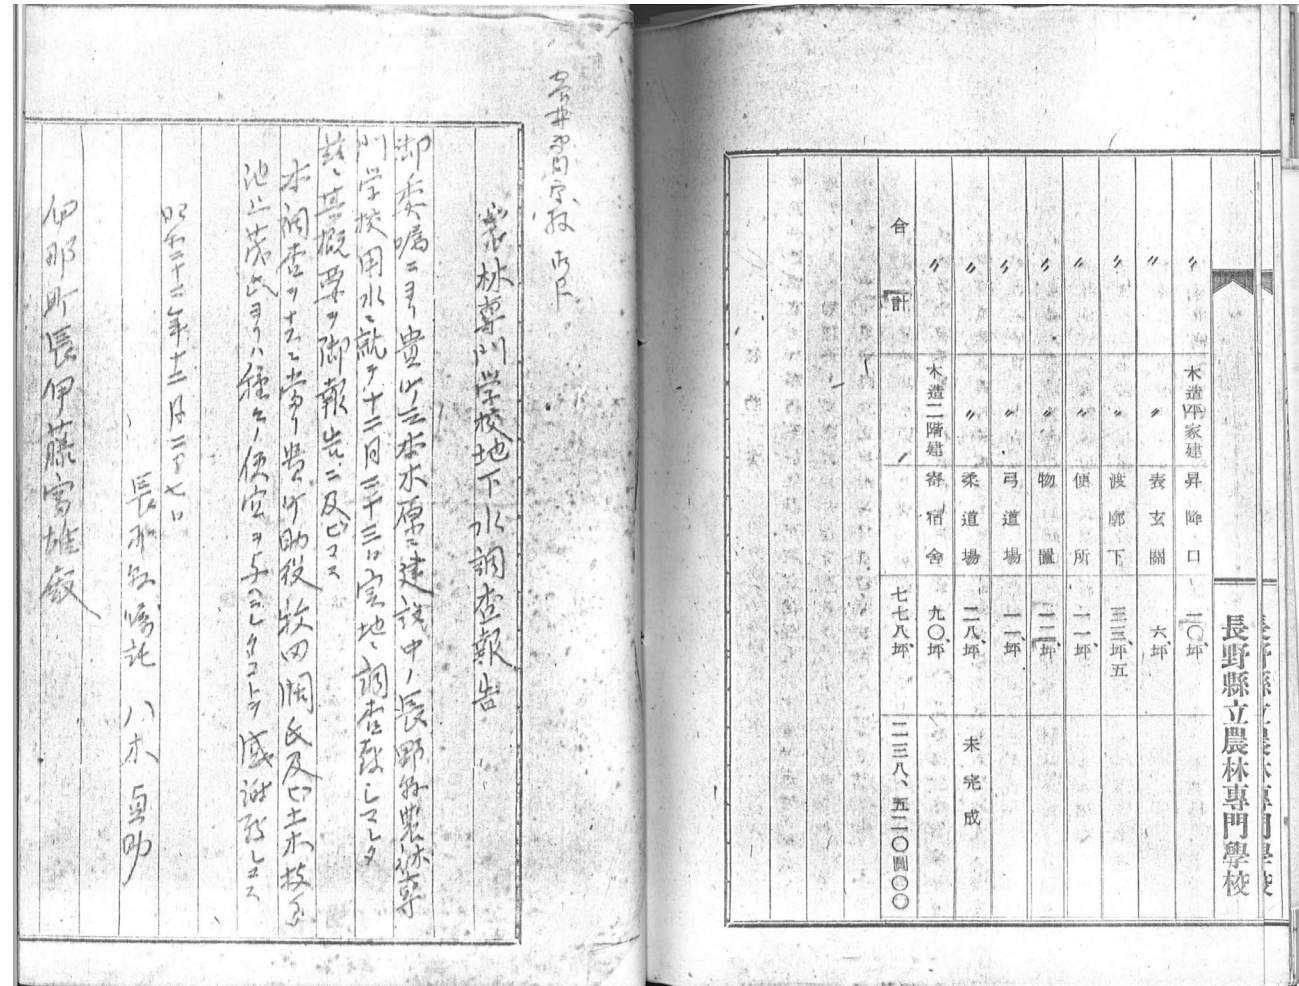 長野縣立農林專門學校
長野縣立農林專門學校
〃 木造平家建 昇降口 二〇、坪
〃 〃 表玄關 六、坪
〃 〃 渡廊下 三三、坪五
〃 〃 便所 一一、坪
〃 〃 物置 一二、坪
〃 〃 弓道場 一一、坪
〃 〃 柔道場 二八、坪 未完成
〃 木造二階建 寄宿舍 九〇、坪
合計 七七八、坪 二二三八、五二〇圓〇〇
農林専門学校地下水調査報告
御委嘱ニヨリ貴町三本木原ニ建設中ノ長野県農林専
門学校用水ニ就テ十二月二十三日実地ニ調査致シマシタ
茲ニ其概要ヲ御報告ニ及ビマス
本調査ヲナスニ当リ貴町助役牧田潤氏及ビ土木技手
池上茂氏ヨリハ種々ノ便宜ヲ与ヘラレタコトヲ感謝致シマス
昭和二十二年十二月二十七日
長野県嘱託 八木貞助
伊那町長伊藤富雄殿